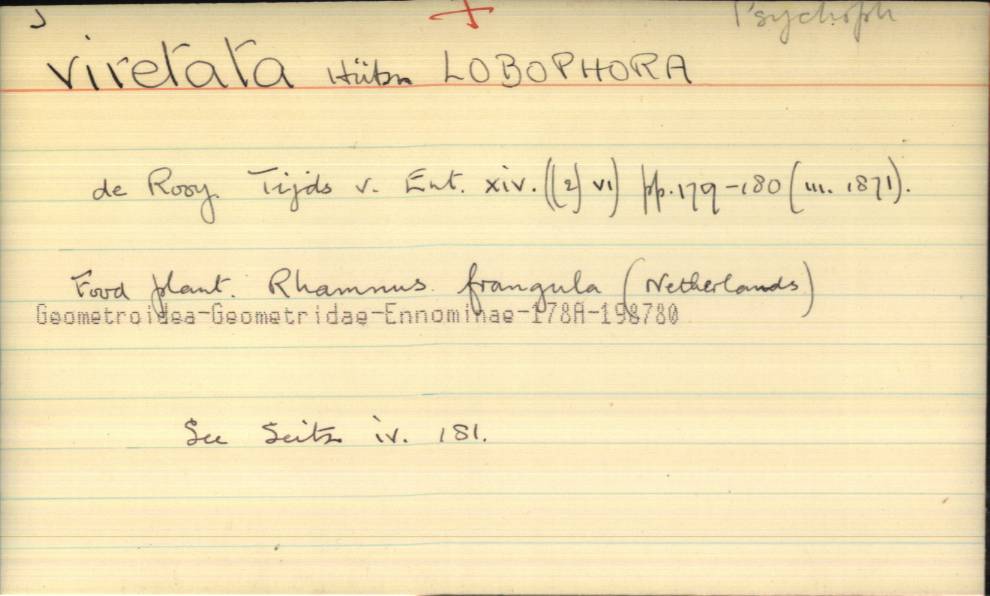 Psychoph
viretata Hübn LOBOPHORA
de Rooy. Tijds v. Ent. xiv. ((2) vi) pp. 179-180 (iii. 1871).
Food plant. Rhamnus frangula (Netherlands)
Geometroidea-Geometridae-Ennominae-178A-198780
See Seitz iv. 181.